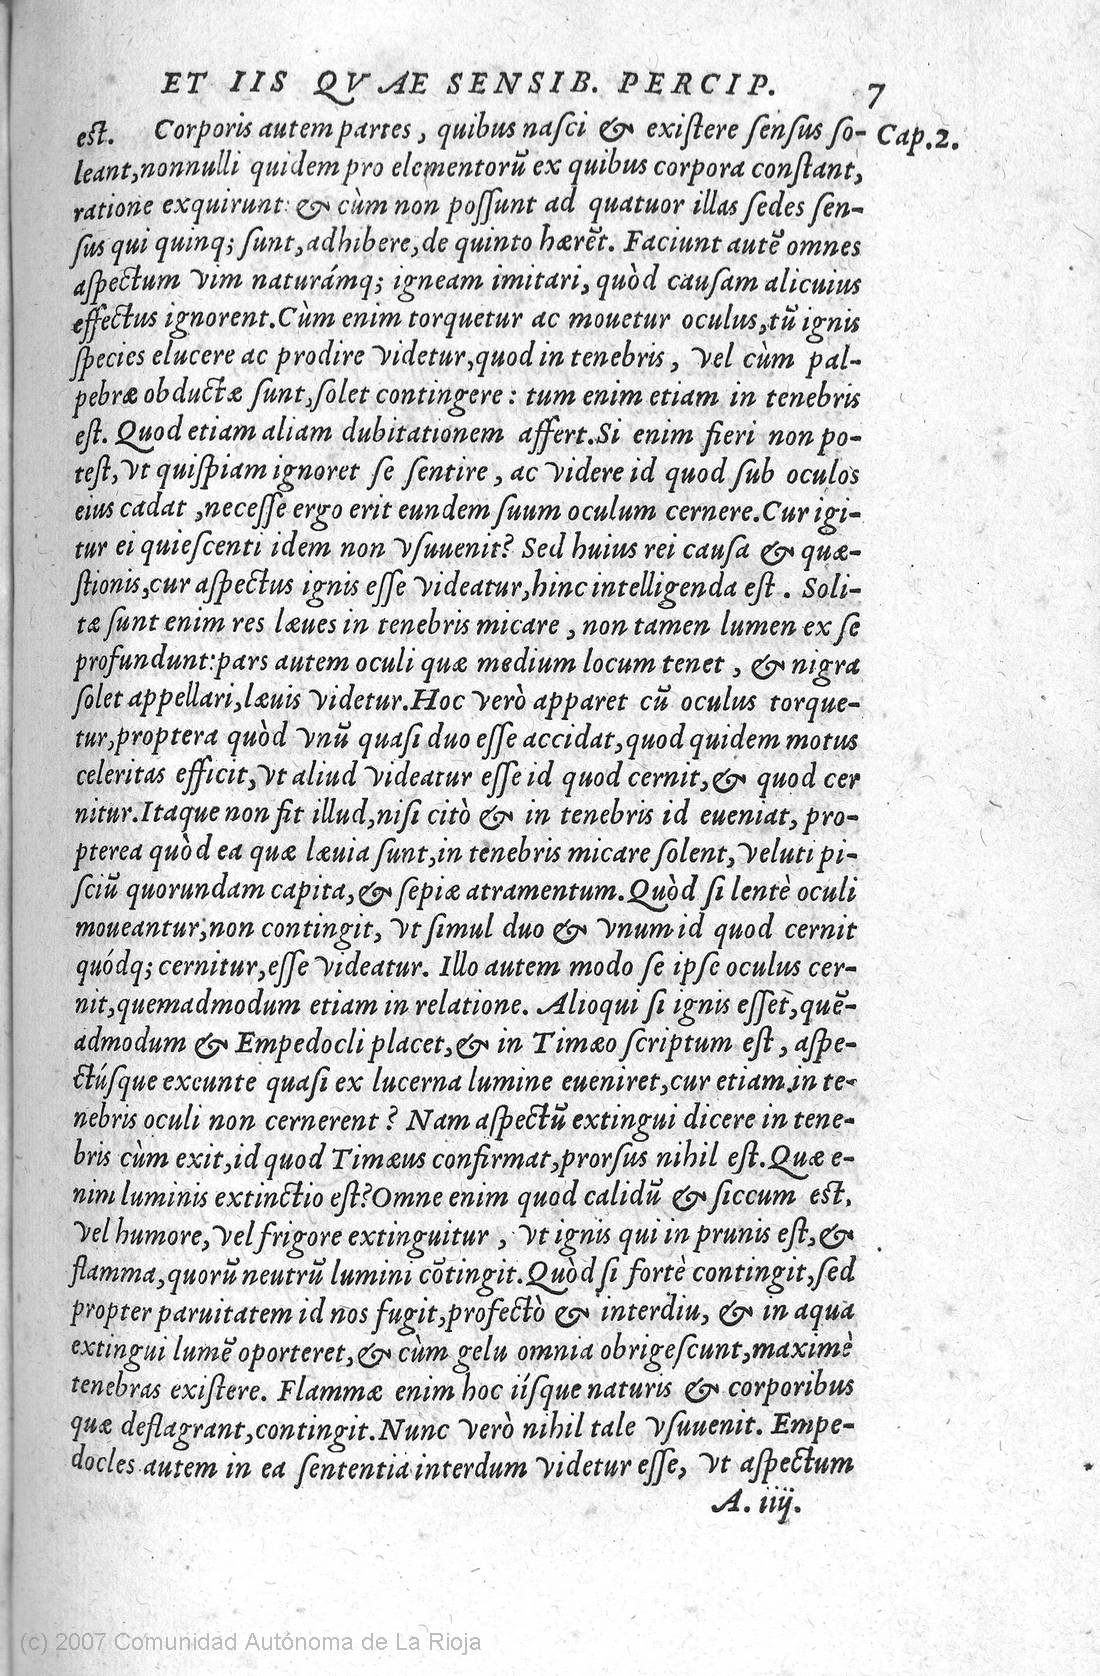 ET IIS QVAE SENSIB. PERCIP. 7
est. Corporis autem partes, quibus nasci & existere sensus so- Cap.2.
leant, nonnulli quidem pro elementorũ ex quibus corpora constant,
ratione exquirunt: & cùm non possunt ad quatuor illas sedes sen-
sus qui quinq; sunt, adhibere, de quinto hærẽt. Faciunt autẽ omnes
aspectum vim naturámq; igneam imitari, quòd causam alicuius
effectus ignorent. Cùm enim torquetur ac mouetur oculus, tũ ignis
species elucere ac prodire videtur, quod in tenebris, vel cùm pal-
pebræ obductæ sunt, solet contingere: tum enim etiam in tenebris
est. Quod etiam aliam dubitationem affert. Si enim fieri non po-
test, vt quispiam ignoret se sentire, ac videre id quod sub oculos
eius cadat, necesse ergo erit eundem suum oculum cernere. Cur igi-
tur ei quiescenti idem non vsuuenit? Sed huius rei causa & quæ-
stionis, cur aspectus ignis esse videatur, hinc intelligenda est. Soli-
tæ sunt enim res læues in tenebris micare, non tamen lumen ex se
profundunt: pars autem oculi quæ medium locum tenet, & nigra
solet appellari, læuis videtur. Hoc verò apparet cũ oculus torque-
tur, propterea quòd vnũ quasi duo esse accidat, quod quidem motus
celeritas efficit, vt aliud videatur esse id quod cernit, & quod cer
nitur. Itaque non fit illud, nisi citò & in tenebris id eueniat, pro-
pterea quòd ea quæ læuia sunt, in tenebris micare solent, veluti pi-
sciũ quorundam capita, & sepiæ atramentum. Quòd si lentè oculi
moueantur, non contingit, vt simul duo & vnum id quod cernit
quódq; cernitur, esse videatur. Illo autem modo se ipse oculus cer-
nit, quemadmodum etiam in relatione. Alioqui si ignis esset, quẽ-
admodum & Empedocli placet, & in Timæo scriptum est, aspe-
ctúsque exeunte quasi ex lucerna lumine eueniret, cur etiam in te-
nebris oculi non cernerent? Nam aspectũ extingui dicere in tene-
bris cùm exit, id quod Timæus confirmat, prorsus nihil est. Quæ e-
nim luminis extinctio est? Omne enim quod calidũ & siccum est,
vel humore, vel frigore extinguitur, vt ignis qui in prunis est, &
flamma, quorũ neutrũ lumini cõtingit. Quòd si fortè contingit, sed
propter paruitatem id nos fugit, profectò & interdiu, & in aqua
extingui lumẽ oporteret, & cùm gelu omnia obrigescunt, maximè
tenebras existere. Flammæ enim hoc iísque naturis & corporibus
quæ deflagrant, contingit. Nunc verò nihil tale vsuuenit. Empe-
docles autem in ea sententia interdum videtur esse, vt aspectum
A. iiij.
(c) 2007 Comunidad Autónoma de La Rioja